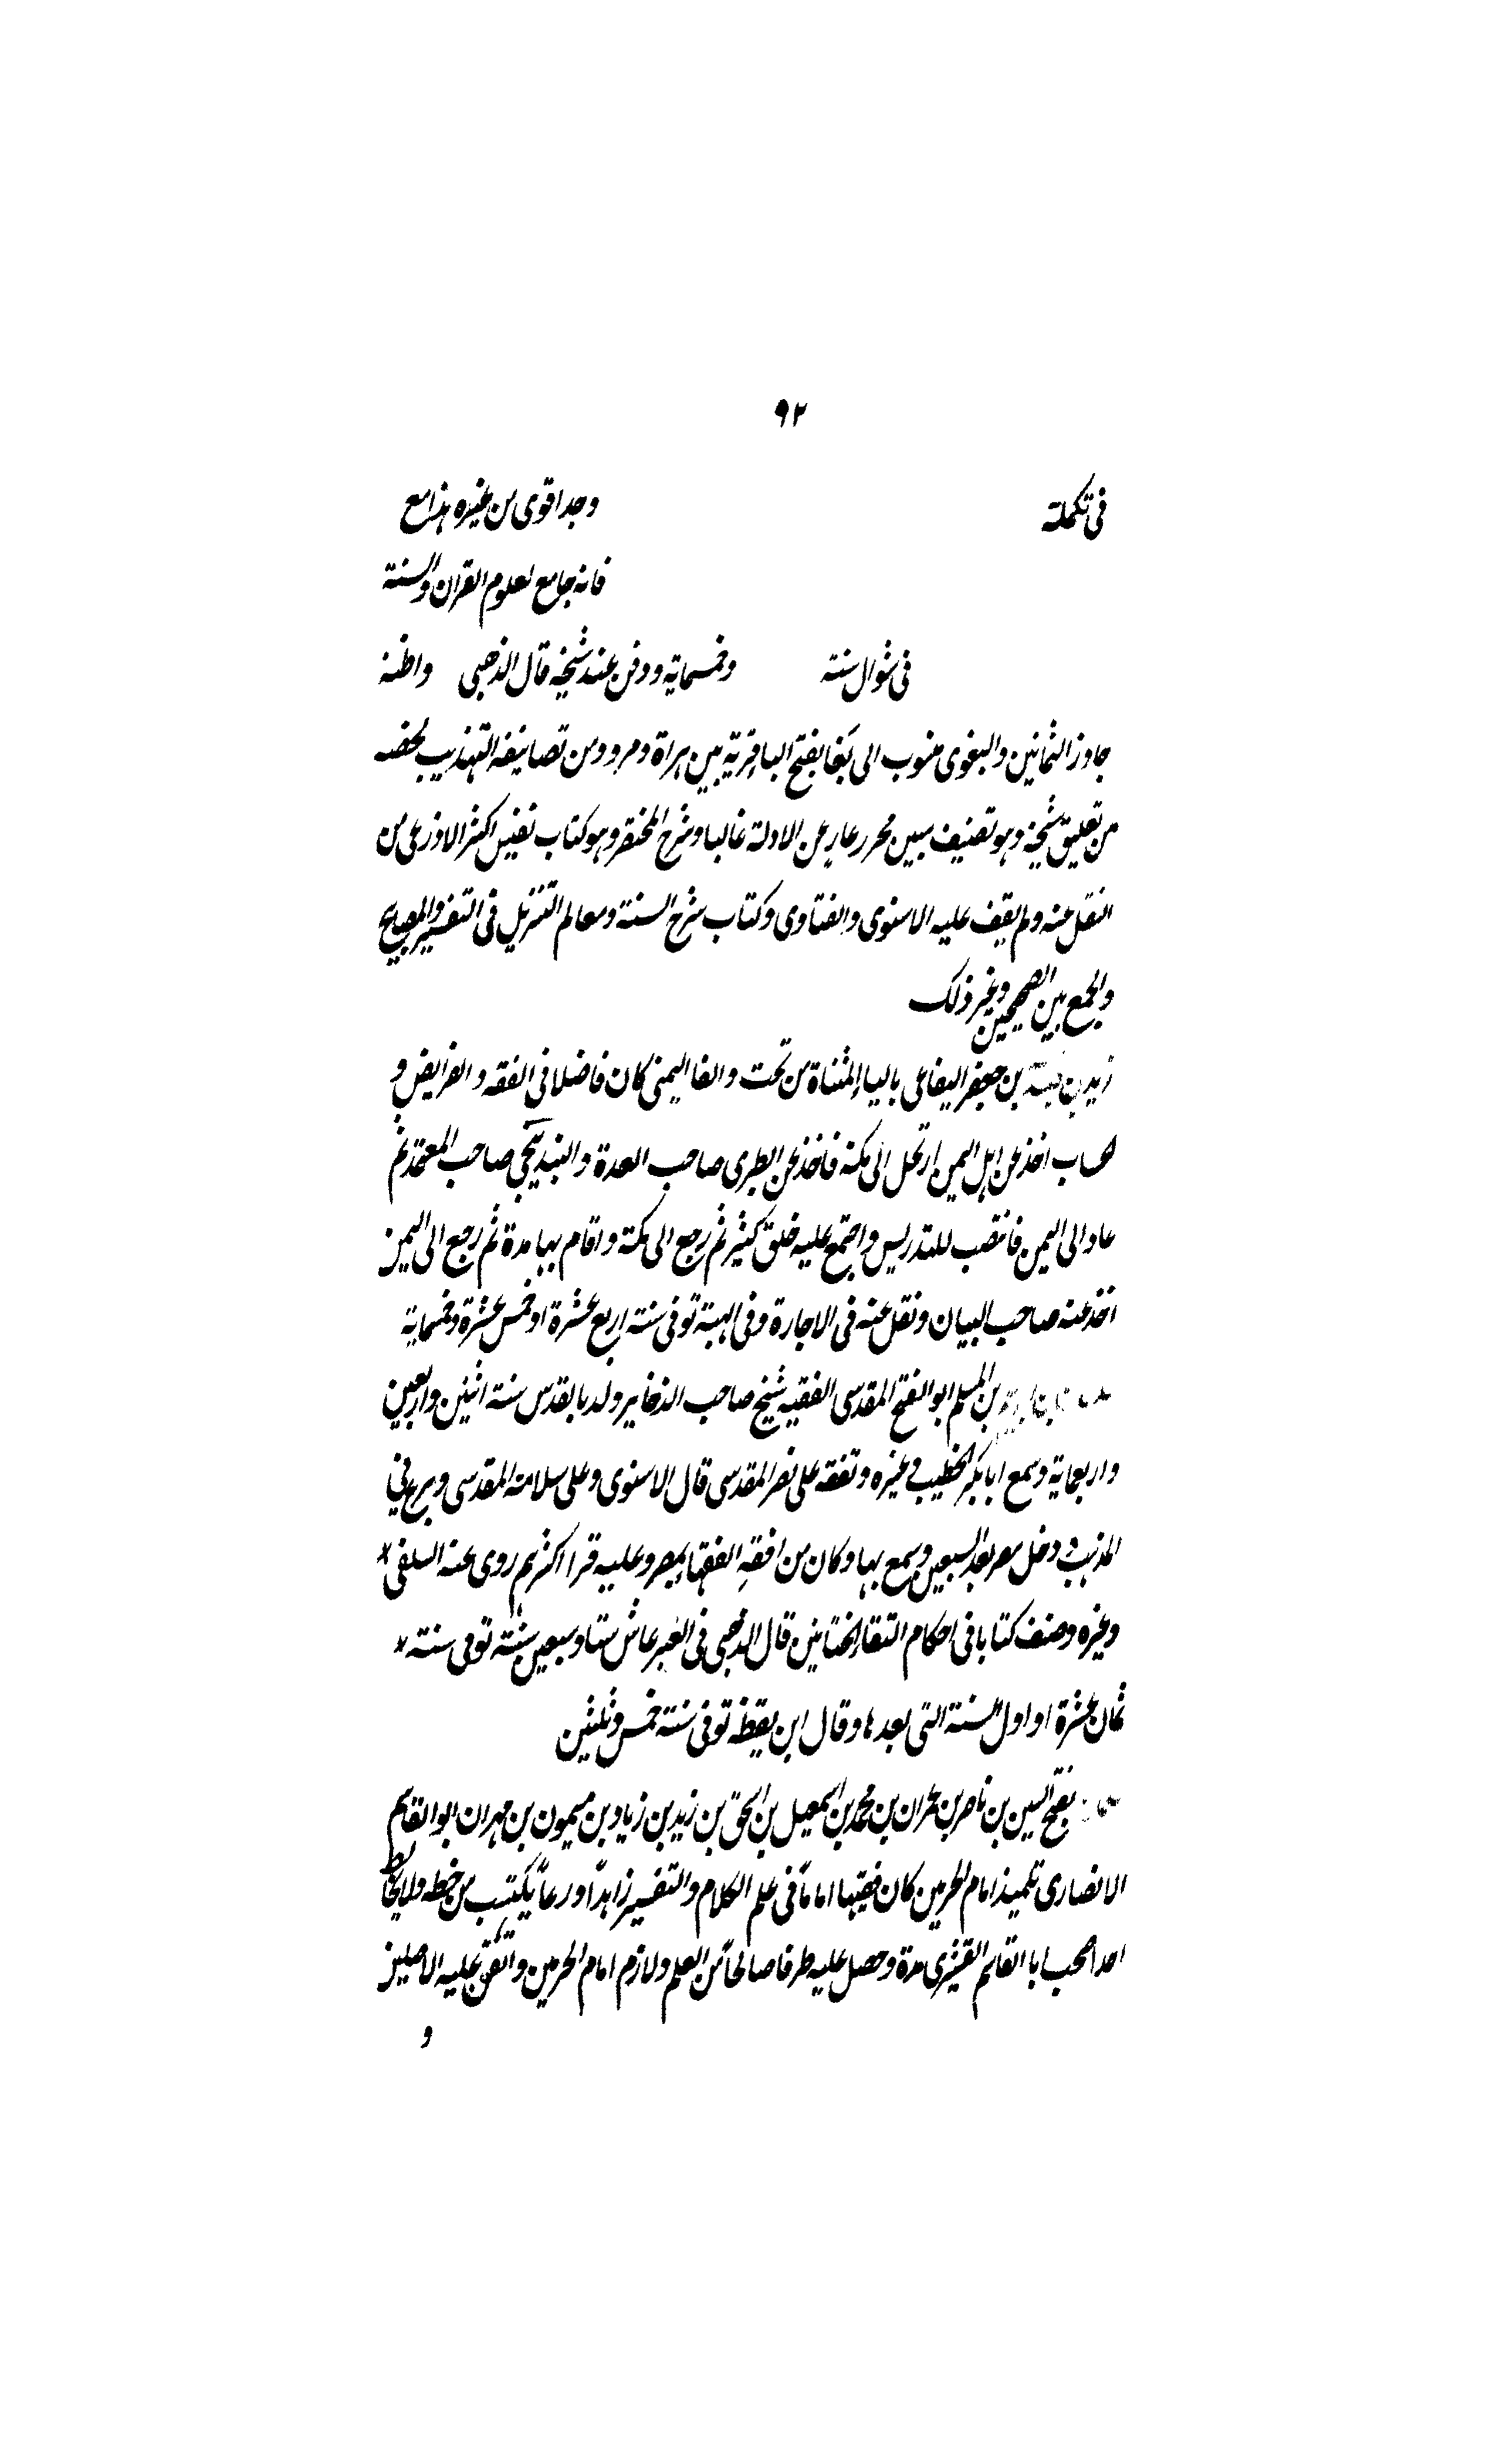 ٩٢
فى تكملة وجد اقوى من غيره هذا مع
فانه جامع لعلوم القران والسنة
فى شوال سنة وخمسماية ودفن عند شيخه قال الذهبى واظنه
جاوز الثمانين والبغوى منسوب الى بَغا بفتح البا قرية بين هراة ومرو ومن تصانيفه التهذيب لخصه
من تعليق شيخه وهو تصنيف مبين محرر عار عن الادلة غالبا وشرح المختصر وهو كتاب نفيس اكثر الاذرعى من
النقل عنه ولم يقف عليه الاسنوى والفتاوى وكتاب شرح السنة ومعالم التنزيل فى التفسير والمصابيح
والجمع بين الصحيحين وغير ذلك
زيد بن بن جعفر اليفاعى بالياء المثناة من تحت والفا اليمنى كان فاضلا فى الفقه والفرايض و
الحساب اخذ عن اهل اليمن ارتحل الى مكة فاخذ عن الطبرى صاحب العدة والبندنيجى صاحب المعتمد ثم
عاد الى اليمن فانتصب للتدريس واجتمع عليه خلق كثير ثم رجع الى مكة واقام بها مدة ثم رجع الى اليمن
اخذ عنه صاحب البيان ونقل عنه فى الاجارة وفى الهبة توفى سنة اربع عشرة او خمس عشرة وخمسماية
بن المسلم ابو الفتح المقدسى الفقيه شيخ صاحب الذخاير ولد بالقدس سنة اثنين واربعين
واربعماية وسمع ابا بكر الخطيب وغيره وتفقه على نصر المقدسى قال الاسنوى وعلى سلامة المقدسى وبرع فى
المذهب ودخل مصر بعد السبعين وسمع بها وكان من افقه الفقها بمصر وعليه قرا اكثرهم روى عنه السلفى *
وغيره وصنف كتابا فى احكام التقا الختانين قال الذهبى فى العبر عاش ستا وسبعين سنة توفى سنة *
ثمان عشرة او اول السنة التى بعدها وقال ابن نقطة توفى سنة خمس وثلثين
بفتح السين بن ناصر بن عمران بن محمد بن اسمعيل بن اسحق بن زيد بن زياد بن ميمون بن مهران ابو القاسم
الانصارى تلميذ امام الحرمين كان فقيها اماماً فى علم الكلام والتفسير زاهداً ورعاً يكتسب من خطه ولا يخالط
احدا صحب ابا القاسم القشيرى مدة وحصل عليه طرفا صالحاً من العلم ولازم امام الحرمين واتقن عليه الاصلين
و